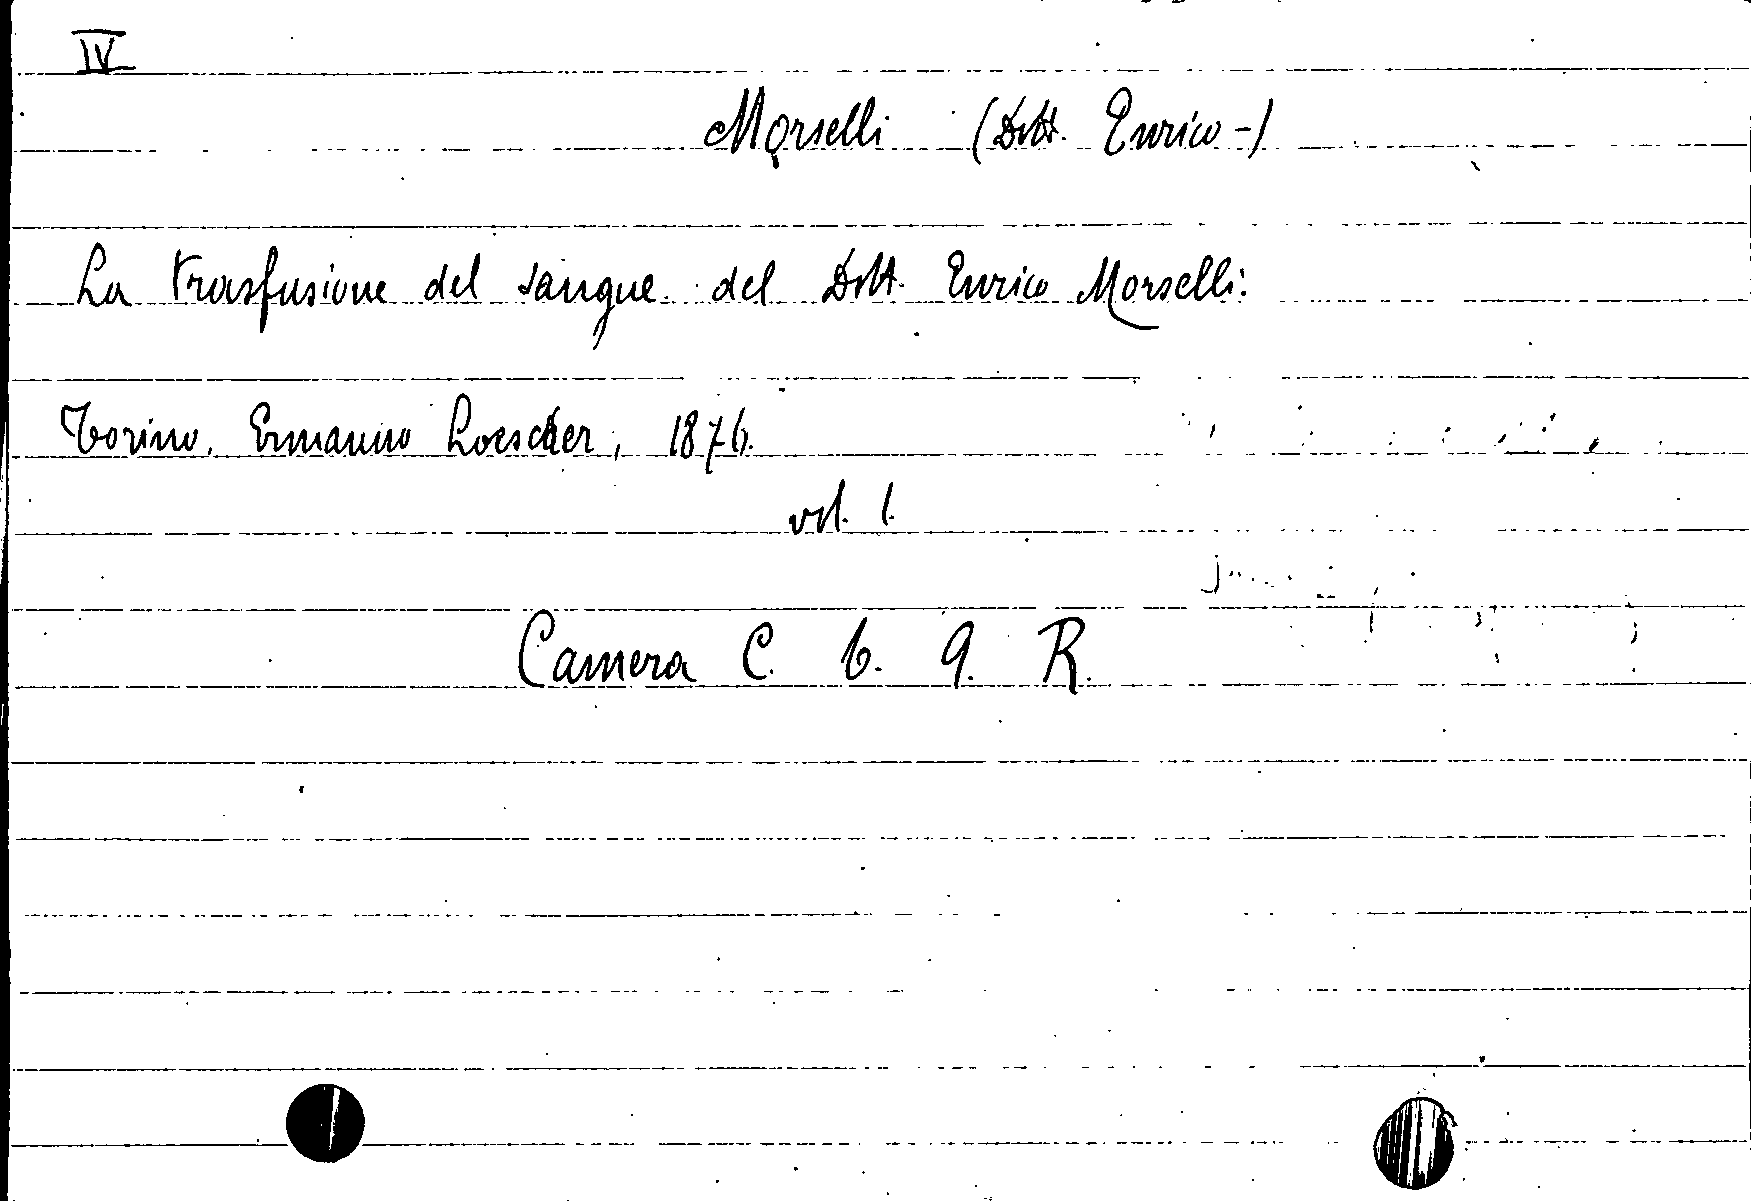 IV
Morselli (Dott. Enrico -)
La trasfusione del sangue del Dott. Enrico Morselli.
Torino, Ermanno Loescher, 1876.
vol. 1.
Camera C. 6. 9. R.